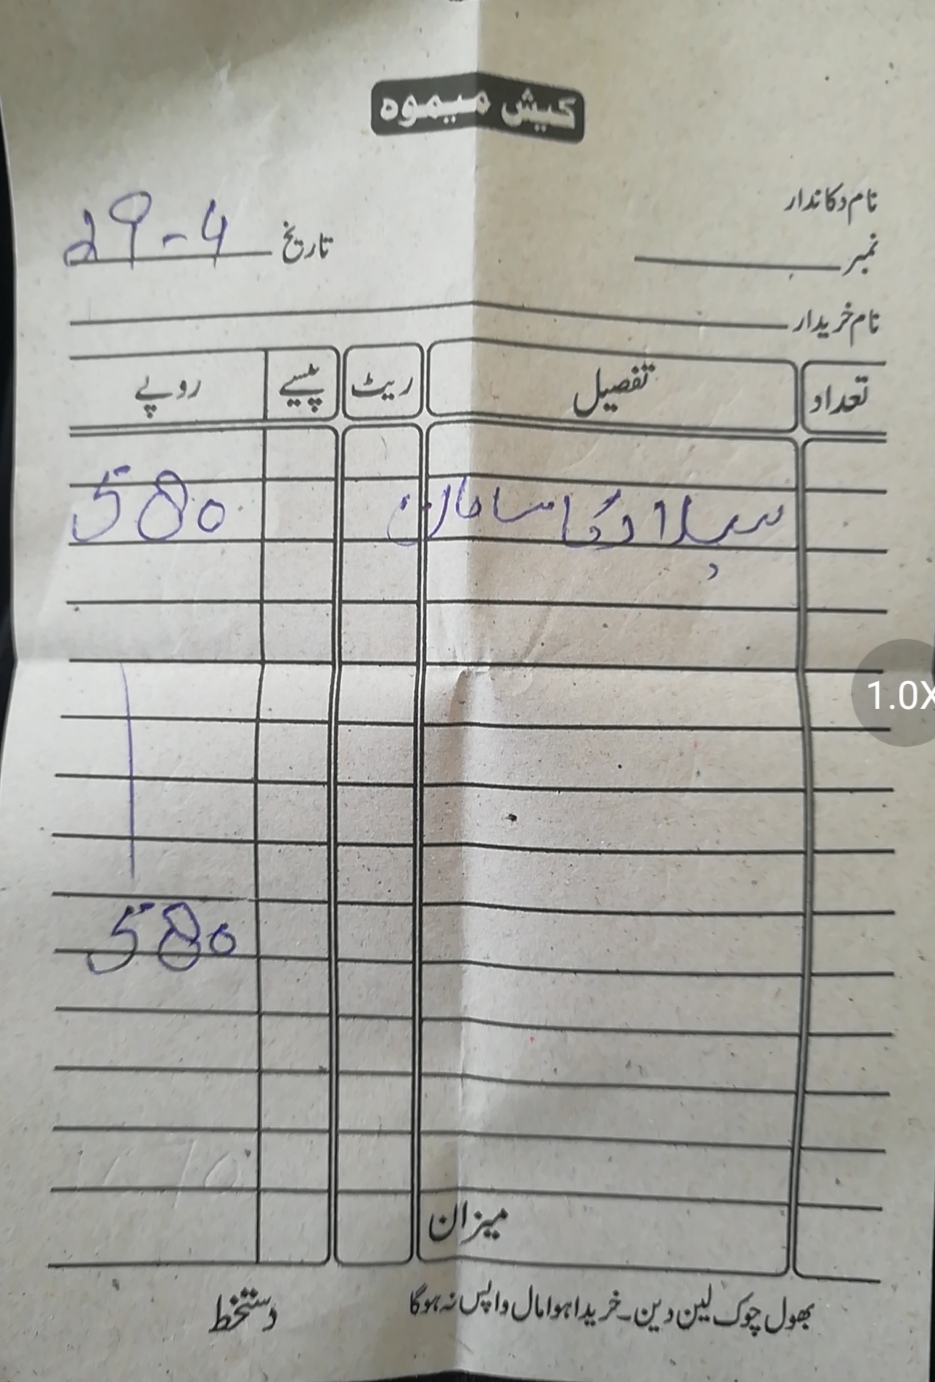 کیش میمو
نام دکاندار
نمبر
تاریخ 29-4
نام خریدار
تعداد تفصیل ریٹ پیسے روپے
سلاد کا سامان 580
580
میزان
بھول چوک لین دین۔ خریدا ہوا مال واپس نہ ہوگا
دستخط
1.0X